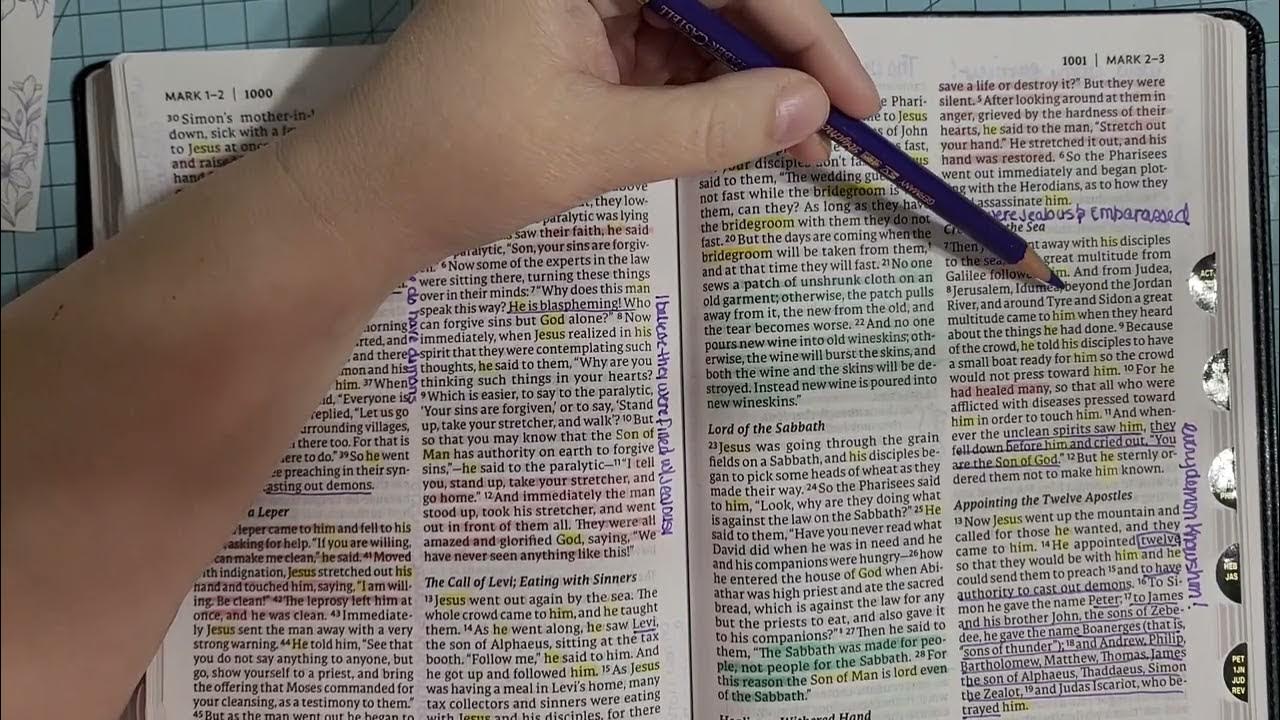 MARK 1–2 | 1000
30 Simon's mother-in-l
down, sick with a f
to Jesus at onc
and rais
hand
morning
rted, and
and there
mon and his
him. 37 When
id, "Everyone is
replied, "Let us go
urrounding villages,
there too. For that is
ere to do." 39 So he went
e preaching in their syn-
asting out demons.
a Leper
leper came to him and fell to his
asking for help. "If you are willing,
can make me clean," he said. 41 Moved
with indignation, Jesus stretched out his
hand and touched him, saying, "I am will-
ing. Be clean!" 42 The leprosy left him at
once, and he was clean. 43 Immediate-
ly Jesus sent the man away with a very
strong warning. 44 He told him, "See that
you do not say anything to anyone, but
go, show yourself to a priest, and bring
the offering that Moses commanded for
your cleansing, as a testimony to them."
45 But as the man went out he began to
do have demons
above
, they low-
paralytic was lying
saw their faith, he said
ralytic, "Son, your sins are forgiv-
en." 6 Now some of the experts in the law
were sitting there, turning these things
over in their minds: 7 "Why does this man
speak this way? He is blaspheming! Who
can forgive sins but God alone?" 8 Now
immediately, when Jesus realized in his
spirit that they were contemplating such
thoughts, he said to them, "Why are you
thinking such things in your hearts?
9 Which is easier, to say to the paralytic,
'Your sins are forgiven,' or to say, 'Stand
up, take your stretcher, and walk'? 10 But
so that you may know that the Son of
Man has authority on earth to forgive
sins,"—he said to the paralytic— 11 "I tell
you, stand up, take your stretcher, and
go home." 12 And immediately the man
stood up, took his stretcher, and went
out in front of them all. They were all
amazed and glorified God, saying, "We
have never seen anything like this!"
The Call of Levi; Eating with Sinners
13 Jesus went out again by the sea. The
whole crowd came to him, and he taught
them. 14 As he went along, he saw Levi,
the son of Alphaeus, sitting at the tax
booth. "Follow me," he said to him. And
he got up and followed him. 15 As Jesus
was having a meal in Levi's home, many
tax collectors and sinners were eating
with Jesus and his disciples, for there
I believe they were filled w/ Jealousy
e Phari-
me to Jesus
s of John
s fast,
Jesus
your disciples don't fa
said to them, "The wedding gue
not fast while the bridegroom is w
them, can they? As long as they have
the bridegroom with them they do not
fast. 20 But the days are coming when the
bridegroom will be taken from them,
and at that time they will fast. 21 No one
sews a patch of unshrunk cloth on an
old garment; otherwise, the patch pulls
away from it, the new from the old, and
the tear becomes worse. 22 And no one
pours new wine into old wineskins; oth-
erwise, the wine will burst the skins, and
both the wine and the skins will be de-
stroyed. Instead new wine is poured into
new wineskins."
Lord of the Sabbath
23 Jesus was going through the grain
fields on a Sabbath, and his disciples be-
gan to pick some heads of wheat as they
made their way. 24 So the Pharisees said
to him, "Look, why are they doing what
is against the law on the Sabbath?" 25 He
said to them, "Have you never read what
David did when he was in need and he
and his companions were hungry— 26 how
he entered the house of God when Abi-
athar was high priest and ate the sacred
bread, which is against the law for any
but the priests to eat, and also gave it
to his companions?" 27 Then he said to
them, "The Sabbath was made for peo-
ple, not people for the Sabbath. 28 For
this reason the Son of Man is lord even
of the Sabbath."
Withered Hand
1001 | MARK 2–3
save a life or destroy it?" But they were
silent. 5 After looking around at them in
anger, grieved by the hardness of their
hearts, he said to the man, "Stretch out
your hand." He stretched it out, and his
hand was restored. 6 So the Pharisees
went out immediately and began plot-
ng with the Herodians, as to how they
assassinate him.
were Jealous & Embarassed
the Sea
7 Then J t away with his disciples
to the sea great multitude from
Galilee followe him. And from Judea,
8 Jerusalem, Idumea, beyond the Jordan
River, and around Tyre and Sidon a great
multitude came to him when they heard
about the things he had done. 9 Because
of the crowd, he told his disciples to have
a small boat ready for him so the crowd
would not press toward him. 10 For he
had healed many, so that all who were
afflicted with diseases pressed toward
him in order to touch him. 11 And when-
ever the unclean spirits saw him, they
fell down before him and cried out, "You
are the Son of God." 12 But he sternly or-
dered them not to make him known.
Appointing the Twelve Apostles
13 Now Jesus went up the mountain and
called for those he wanted, and they
came to him. 14 He appointed twelve
so that they would be with him and he
could send them to preach 15 and to have
authority to cast out demons. 16 To Si-
mon he gave the name Peter; 17 to James
and his brother John, the sons of Zebe-
dee, he gave the name Boanerges (that is,
"sons of thunder"); 18 and Andrew, Philip,
Bartholomew, Matthew, Thomas, James
the son of Alphaeus, Thaddaeus, Simon
the Zealot, 19 and Judas Iscariot, who be-
trayed him.
every demon knows him!
ACT
HEB
JAS
PET
1JN
JUD
REV